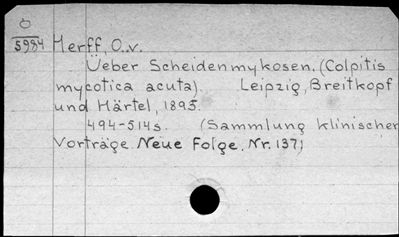 5984 Herff, O.v.
Ueber Scheidenmykosen. (Colpitis
mycotica acuta). Leipzig, Breitkopf
und Härtel, 1895.
494-514s. (Sammlung klinischer
Vorträge. Neue Folge. Nr. 137)